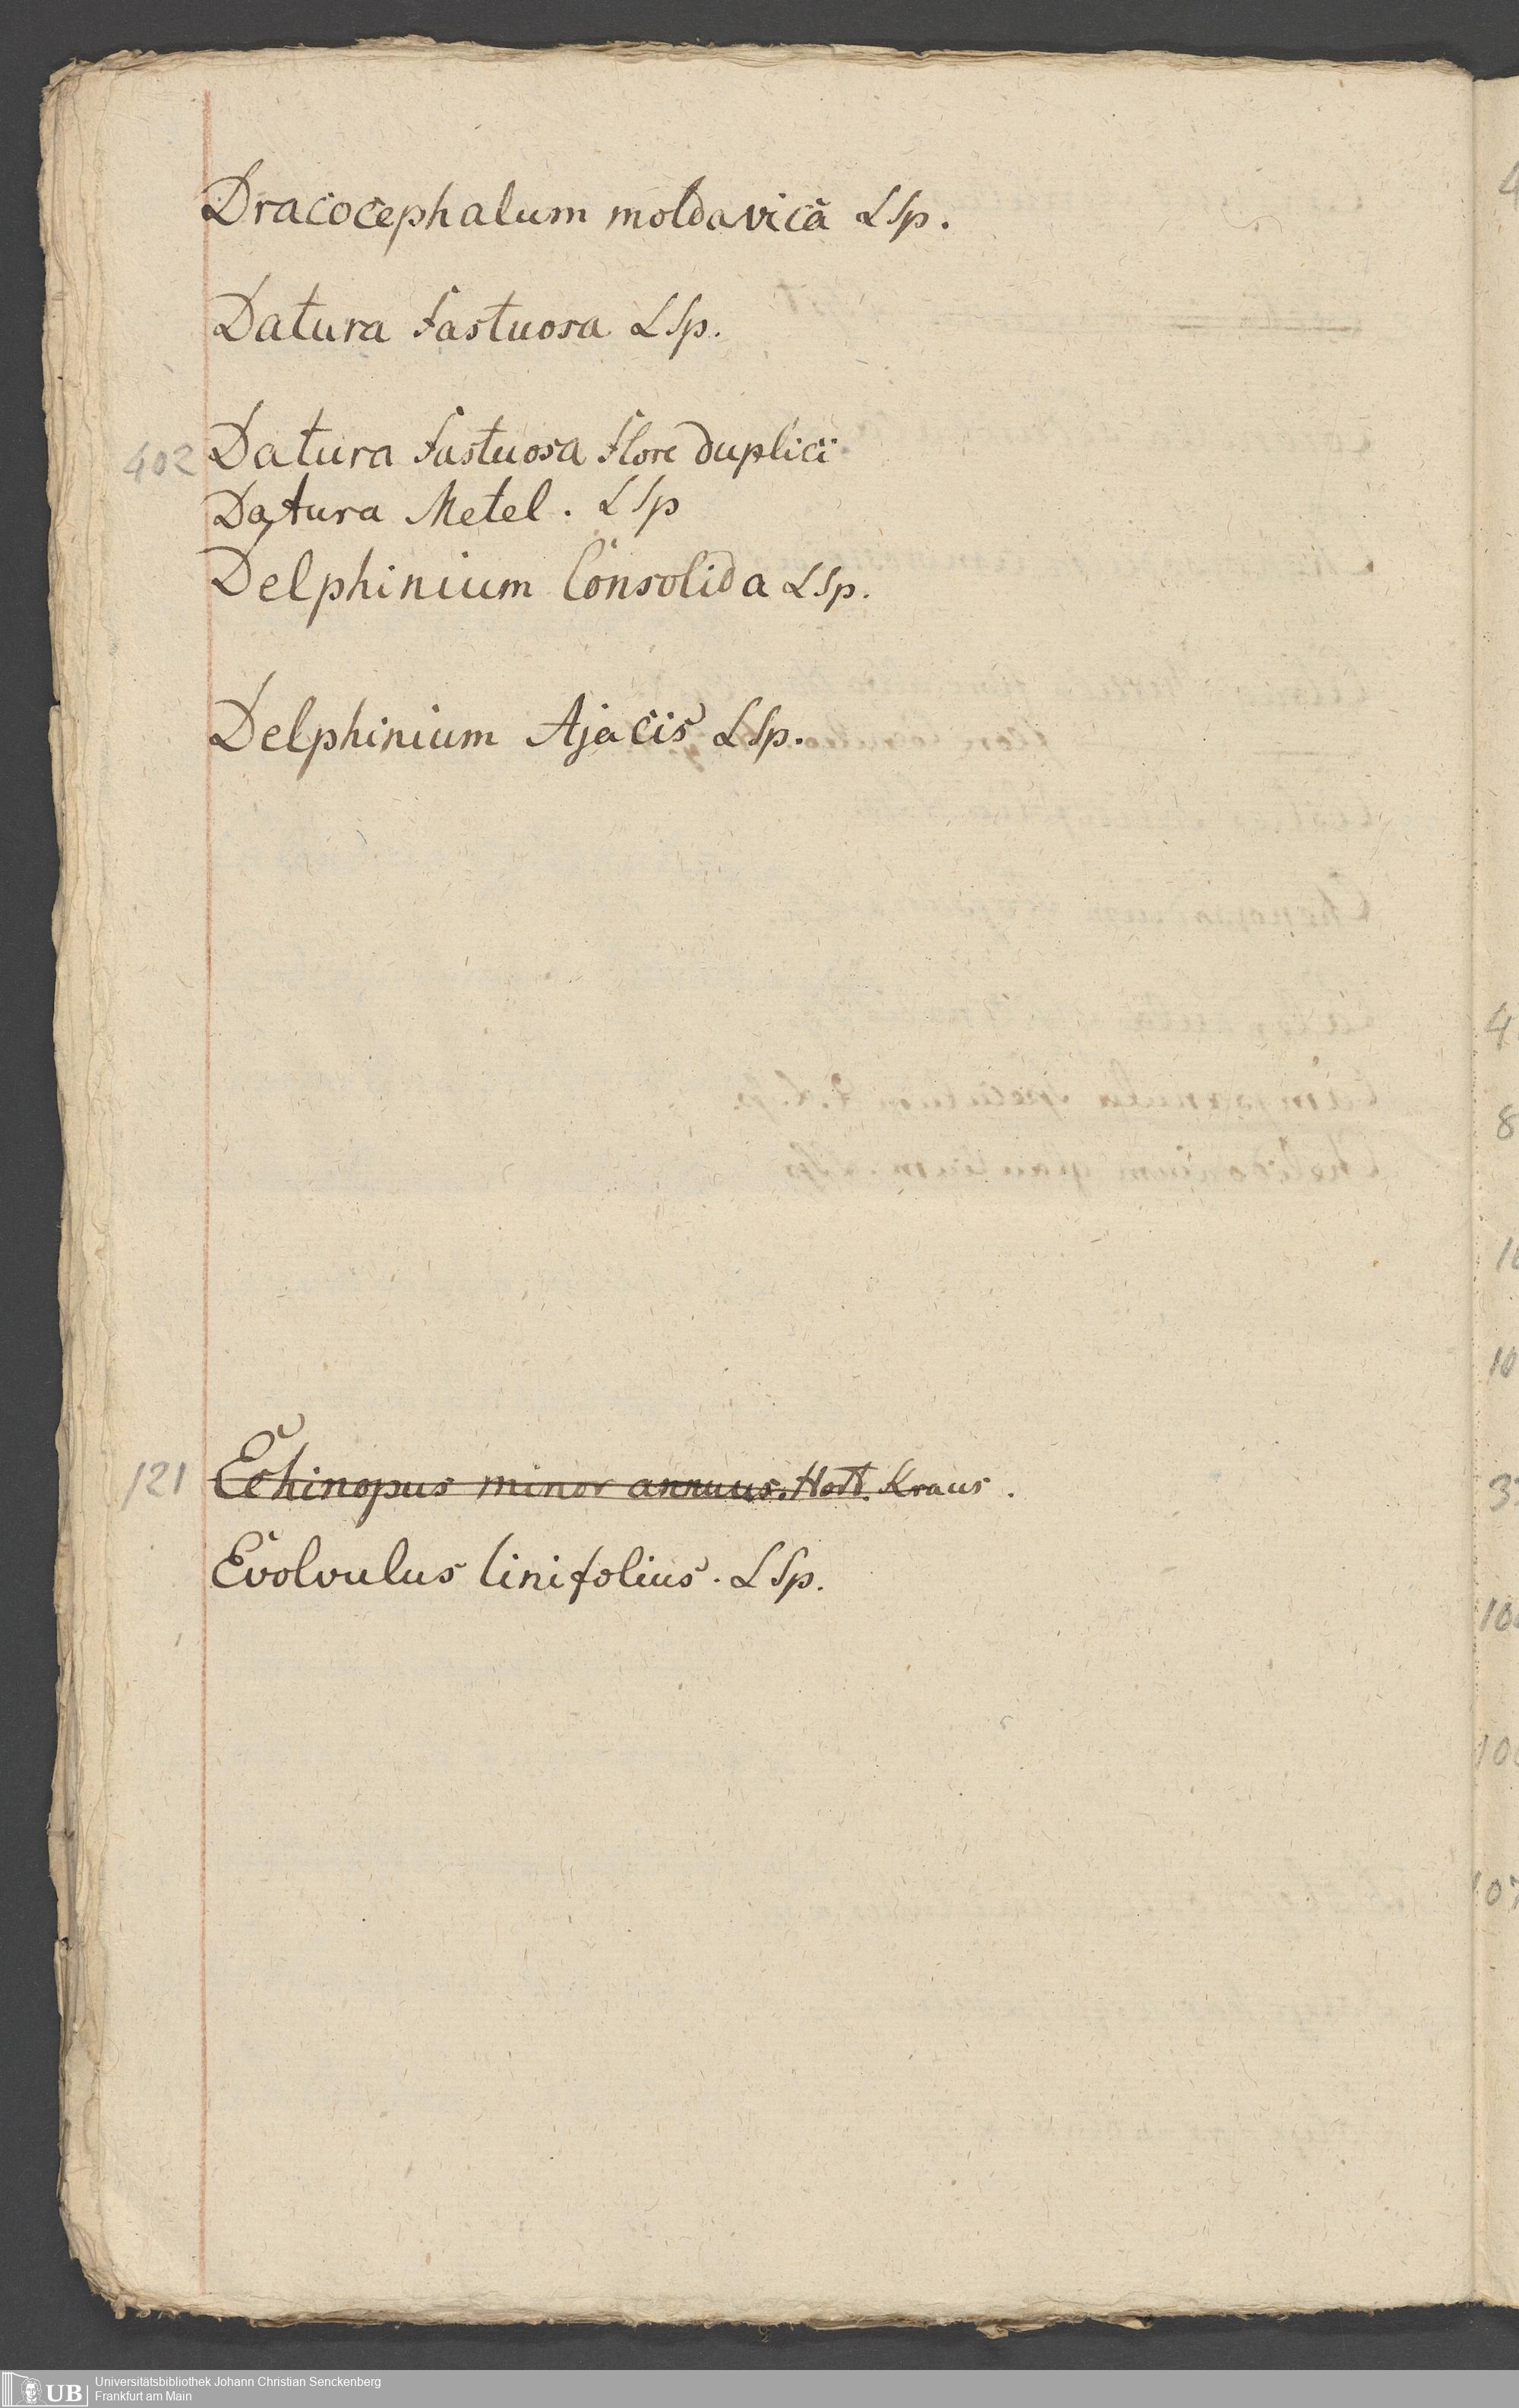 Dracocephalum moldavica LSp.
Datura fastuosa LSp.
402 Datura fastuosa flore duplici
Datura Metel. LSp
Delphinium Consolida LSp.
Delphinium Ajacis LSp.
121 Echinopus minor annuus. Hort. Kraus.
Evolvulus linifolius. LSp.
UB
Universitätsbibliothek Johann Christian Senckenberg
Frankfurt am Main